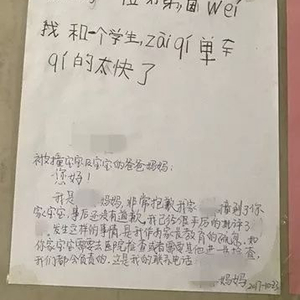 位 wéi
找 和一个学生, zài qí 单车
qí 的太快了
被撞宝宝及宝宝的爸爸妈妈:
您好!
我是 妈妈, 非常抱歉我家 撞到了你
家宝宝, 事后还没有道歉, 我已经很严厉的批评了
发生这样的事情, 是我作为家长教育的疏忽, 如
你家宝宝需要去医院检查或者需要其他进一步检查,
我们都会负责的. 这是我的联系电话
妈妈 2017-10.23